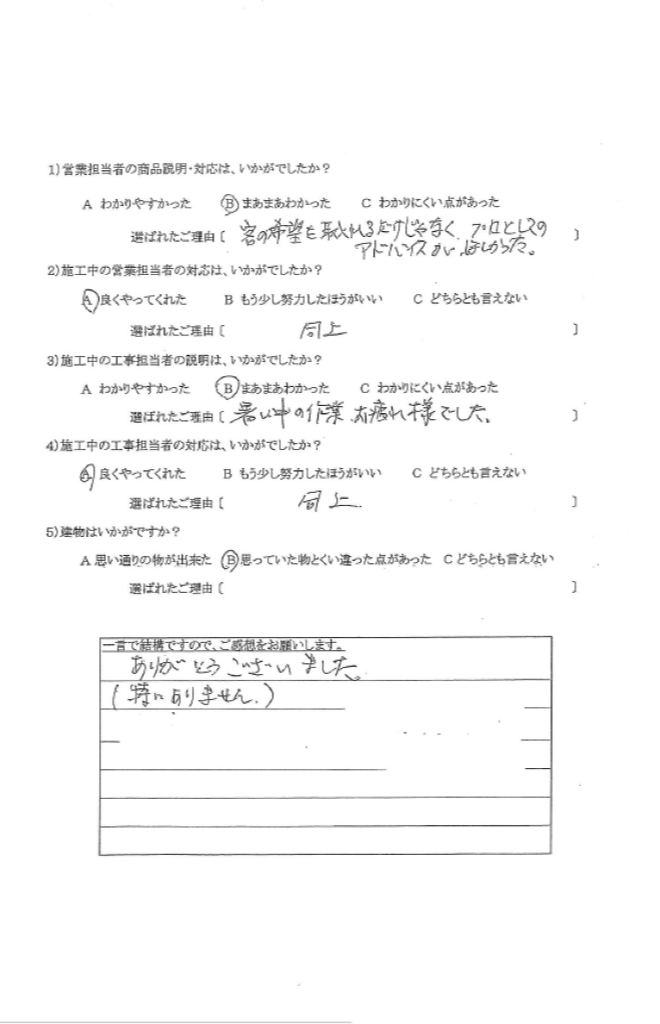 1)営業担当者の商品説明・対応は、いかがでしたか?
A わかりやすかった B まあまあわかった C わかりにくい点があった
選ばれたご理由〔 客の希望を取り入れるだけじゃなく、プロとしての
アドバイスがほしかった。 〕
2)施工中の営業担当者の対応は、いかがでしたか?
A 良くやってくれた B もう少し努力したほうがいい C どちらとも言えない
選ばれたご理由〔 同上 〕
3)施工中の工事担当者の説明は、いかがでしたか?
A わかりやすかった B まあまあわかった C わかりにくい点があった
選ばれたご理由〔 暑い中の作業、お疲れ様でした。 〕
4)施工中の工事担当者の対応は、いかがでしたか?
A 良くやってくれた B もう少し努力したほうがいい C どちらとも言えない
選ばれたご理由〔 同上 〕
5)建物はいかがですか?
A 思い通りの物が出来た B 思っていた物とくい違った点があった C どちらとも言えない
選ばれたご理由〔 〕
一言で結構ですので、ご感想をお願いします。
ありがとうございました。
(特にありません。)